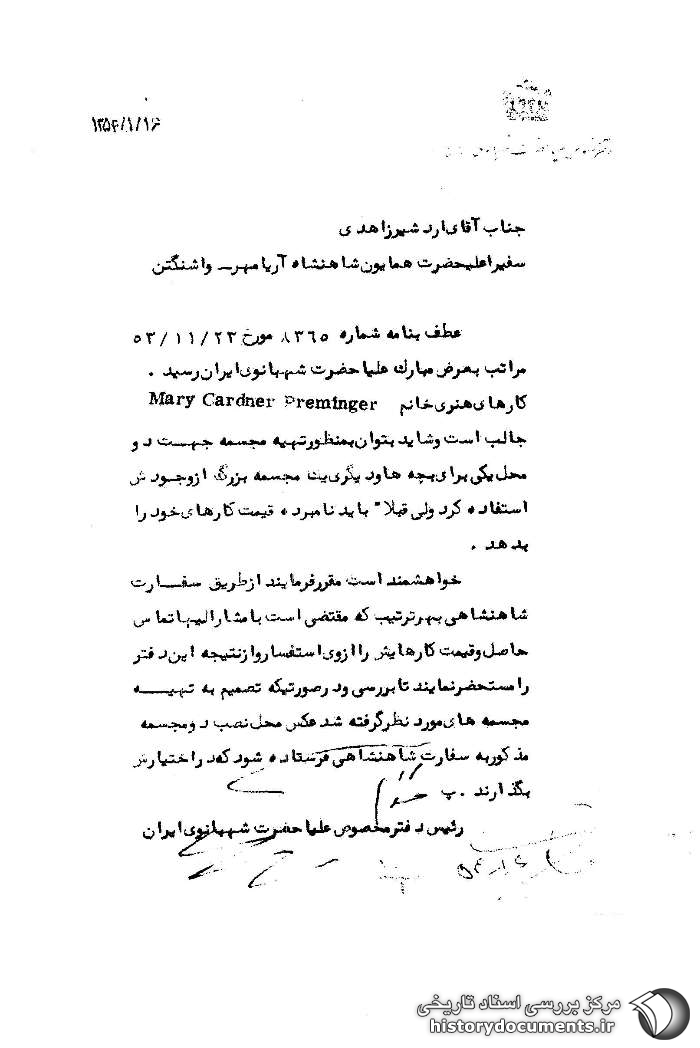 ۱۳۵۴/۱/۱۶
جناب آقای اردشیر زاهدی
سفیر اعلیحضرت همایون شاهنشاه آریامهر ـ واشنگتن
عطف بنامه شماره ۸۳۶۵ مورخ ۵۳/۱۱/۲۳
مراتب بعرض مبارک علیاحضرت شهبانوی ایران رسید .
کارهای هنری خانم Mary Cardner Preminger
جالب است و شاید بتوان بمنظور تهیه مجسمه جهت دو
محل یکی برای بچه ها و دیگری یک مجسمه بزرگ از وجودش
استفاده کرد ولی قبلا" باید نامبرده قیمت کارهای خود را
بدهد .
خواهشمند است مقرر فرمایند از طریق سفارت
شاهنشاهی بهر ترتیب که مقتضی است با مشارالیها تماس
حاصل و قیمت کارهایش را از وی استفسار و از نتیجه این دفتر
را مستحضر نمایند تا بررسی و در صورتیکه تصمیم به تهیه
مجسمه های مورد نظر گرفته شد عکس محل نصب دو مجسمه
مذکور به سفارت شاهنشاهی فرستاده شود که در اختیارش
بگذارند . پ
رئیس دفتر مخصوص علیاحضرت شهبانوی ایران
مرکز بررسی اسناد تاریخی
historydocuments.ir